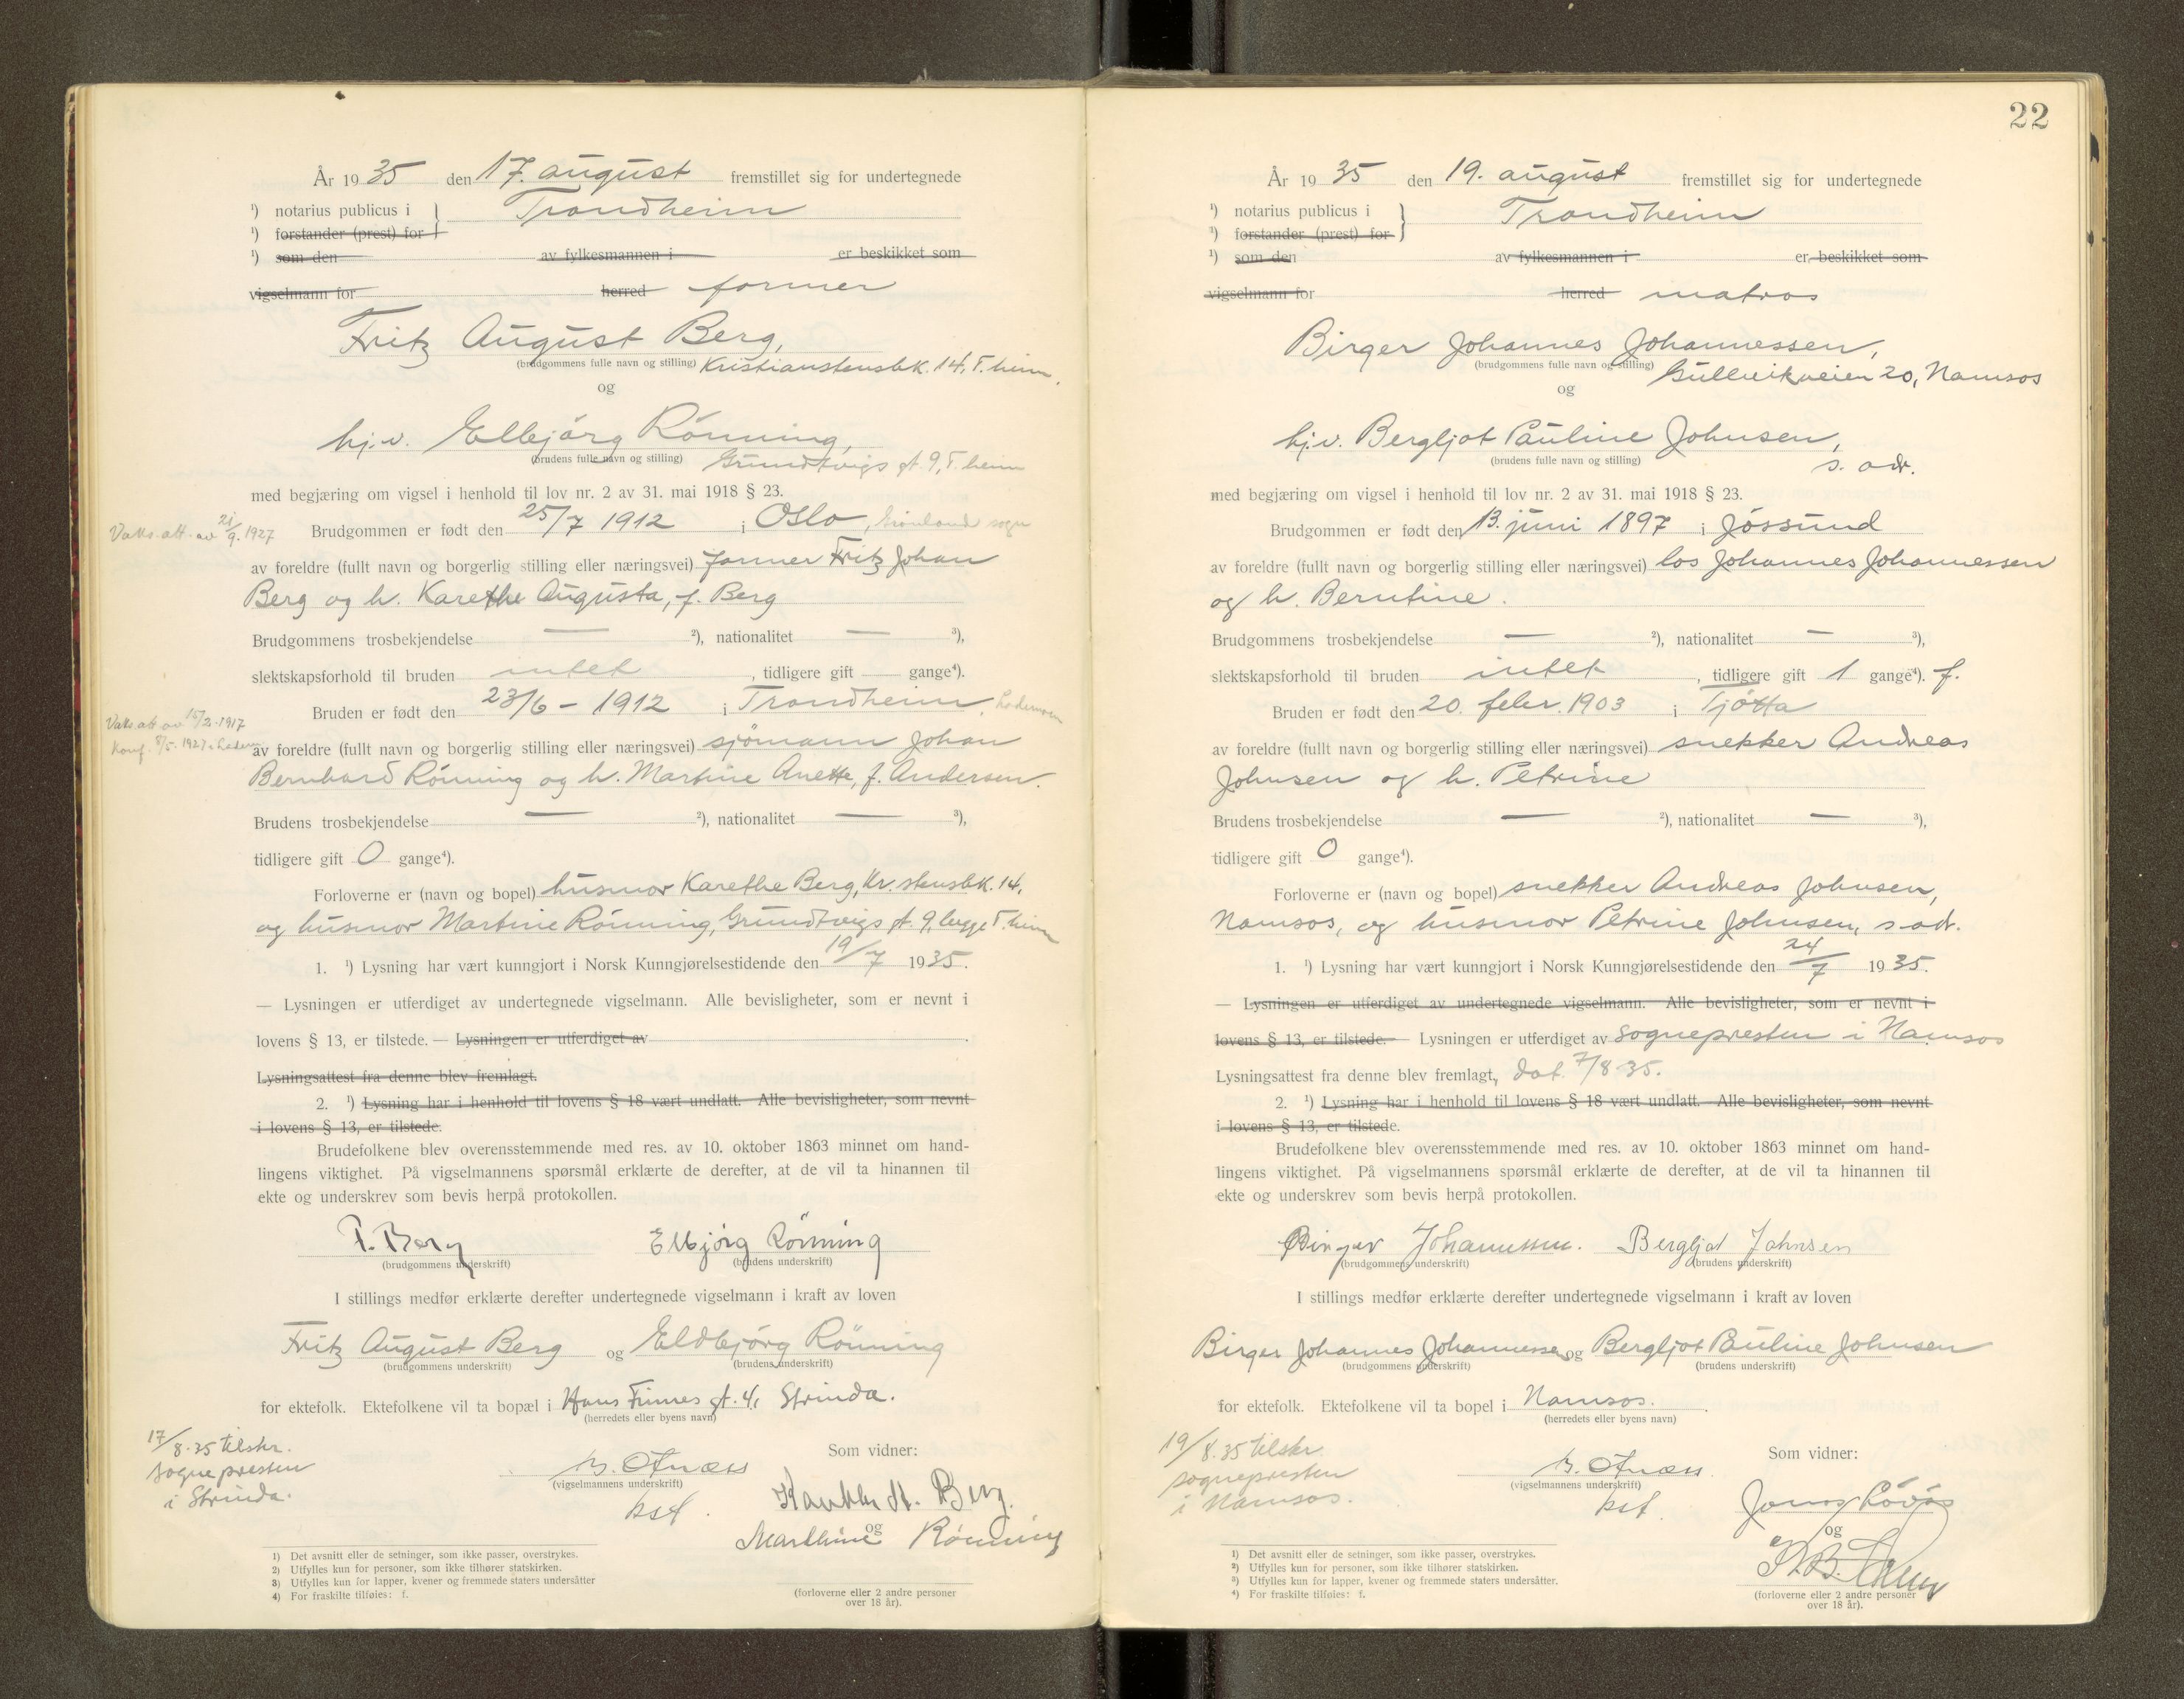 År 1935 den 17. august fremstillet sig for undertegnede
¹) notarius publicus i } Trondheim
¹) forstander (prest) for
¹) som den av fylkesmannen i er beskikket som
vigselmann for herred former
Fritz August Berg,
(brudgommens fulle navn og stilling) Kristianstensbk. 14, T.heim.
og
hj.v. Elbjørg Rönning,
(brudens fulle navn og stilling) Grundtvigs gt. 9, T.heim
med begjæring om vigsel i henhold til lov nr. 2 av 31. mai 1918 § 23.
Vaks.att. av 21/9.1927 Brudgommen er født den 25/7 1912 i Oslo, Grønland sogn
av foreldre (fullt navn og borgerlig stilling eller næringsvei) former Fritz Johan
Berg og h. Karethe Augusta, f. Berg
Brudgommens trosbekjendelse — ²), nationalitet — ³),
slektskapsforhold til bruden intet, tidligere gift gange⁴).
Vaks.att av 15/2.1917 Bruden er født den 23/6 - 1912 i Trondheim, Lademoen
Konf. 8/5.1927 i Ladem
av foreldre (fullt navn og borgerlig stilling eller næringsvei) sjömann Johan
Bernhard Rönning og h. Martine Anette, f. Andersen.
Brudens trosbekjendelse — ²), nationalitet — ³),
tidligere gift 0 gange⁴).
Forloverne er (navn og bopel) husmor Karethe Berg, Kr.stensbk. 14,
og husmor Martine Rönning, Grundtvigs gt. 9, begge T.heim
1. ¹) Lysning har vært kunngjort i Norsk Kunngjørelsestidende den 19/7 1935.
— Lysningen er utferdiget av undertegnede vigselmann. Alle bevisligheter, som er nevnt i
lovens § 13, er tilstede. — Lysningen er utferdiget av
Lysningsattest fra denne blev fremlagt.
2. ¹) Lysning har i henhold til lovens § 18 vært undlatt. Alle bevisligheter, som nevnt
i lovens § 13, er tilstede.
Brudefolkene blev overensstemmende med res. av 10. oktober 1863 minnet om hand-
lingens viktighet. På vigselmannens spørsmål erklærte de derefter, at de vil ta hinannen til
ekte og underskrev som bevis herpå protokollen.
F. Berg Elbjörg Rönning
(brudgommens underskrift) (brudens underskrift)
I stillings medfør erklærte derefter undertegnede vigselmann i kraft av loven
Fritz August Berg og Eldbjörg Rönning
(brudgommens underskrift) (brudens underskrift)
for ektefolk. Ektefolkene vil ta bopæl i Hans Finnes gt. 4, Strinda.
(herredets eller byens navn)
17/8.35 tilskr.
sognepresten
i Strinda.
(vigselmannens underskrift)
kst.
Som vidner:
Karethe A. Berg.
og
Marthine Rönning
(forloverne eller 2 andre personer
over 18 år).
1) Det avsnitt eller de setninger, som ikke passer, overstrykes.
2) Utfylles kun for personer, som ikke tilhører statskirken.
3) Utfylles kun for lapper, kvener og fremmede staters undersåtter
4) For fraskilte tilføies: f.
22
År 1935 den 19. august fremstillet sig for undertegnede
¹) notarius publicus i } Trondheim
¹) forstander (prest) for
¹) som den av fylkesmannen i er beskikket som
vigselmann for herred matros
Birger Johannes Johannessen,
(brudgommens fulle navn og stilling) Gullvikveien 20, Namsos
og
hj.v. Bergljot Pauline Johnsen,
(brudens fulle navn og stilling) s. adr.
med begjæring om vigsel i henhold til lov nr. 2 av 31. mai 1918 § 23.
Brudgommen er født den 13. juni 1897 i Jössund
av foreldre (fullt navn og borgerlig stilling eller næringsvei) los Johannes Johannessen
og h. Berntine.
Brudgommens trosbekjendelse — ²), nationalitet — ³),
slektskapsforhold til bruden intet, tidligere gift 1 gange⁴). f.
Bruden er født den 20. febr. 1903 i Tjötta
av foreldre (fullt navn og borgerlig stilling eller næringsvei) snekker Andreas
Johnsen og h. Petrine
Brudens trosbekjendelse — ²), nationalitet — ³),
tidligere gift 0 gange⁴).
Forloverne er (navn og bopel) snekker Andreas Johnsen,
Namsos, og husmor Petrine Johnsen, s. adr.
1. ¹) Lysning har vært kunngjort i Norsk Kunngjørelsestidende den 24/7 1935.
— Lysningen er utferdiget av undertegnede vigselmann. Alle bevisligheter, som er nevnt i
lovens § 13, er tilstede. — Lysningen er utferdiget av sognepresten i Namsos
Lysningsattest fra denne blev fremlagt, dat. 7/8 35.
2. ¹) Lysning har i henhold til lovens § 18 vært undlatt. Alle bevisligheter, som nevnt
i lovens § 13, er tilstede.
Brudefolkene blev overensstemmende med res. av 10. oktober 1863 minnet om hand-
lingens viktighet. På vigselmannens spørsmål erklærte de derefter, at de vil ta hinannen til
ekte og underskrev som bevis herpå protokollen.
Birger Johannessen. Bergljot Johnsen
(brudgommens underskrift) (brudens underskrift)
I stillings medfør erklærte derefter undertegnede vigselmann i kraft av loven
Birger Johannes Johannessen og Bergljot Pauline Johnsen
(brudgommens underskrift) (brudens underskrift)
for ektefolk. Ektefolkene vil ta bopel i Namsos.
(herredets eller byens navn)
19/8.35 tilskr.
sognepresten
i Namsos.
(vigselmannens underskrift)
kst.
Som vidner:
og
(forloverne eller 2 andre personer
over 18 år).
1) Det avsnitt eller de setninger, som ikke passer, overstrykes.
2) Utfylles kun for personer, som ikke tilhører statskirken.
3) Utfylles kun for lapper, kvener og fremmede staters undersåtter.
4) For fraskilte tilføies: f.